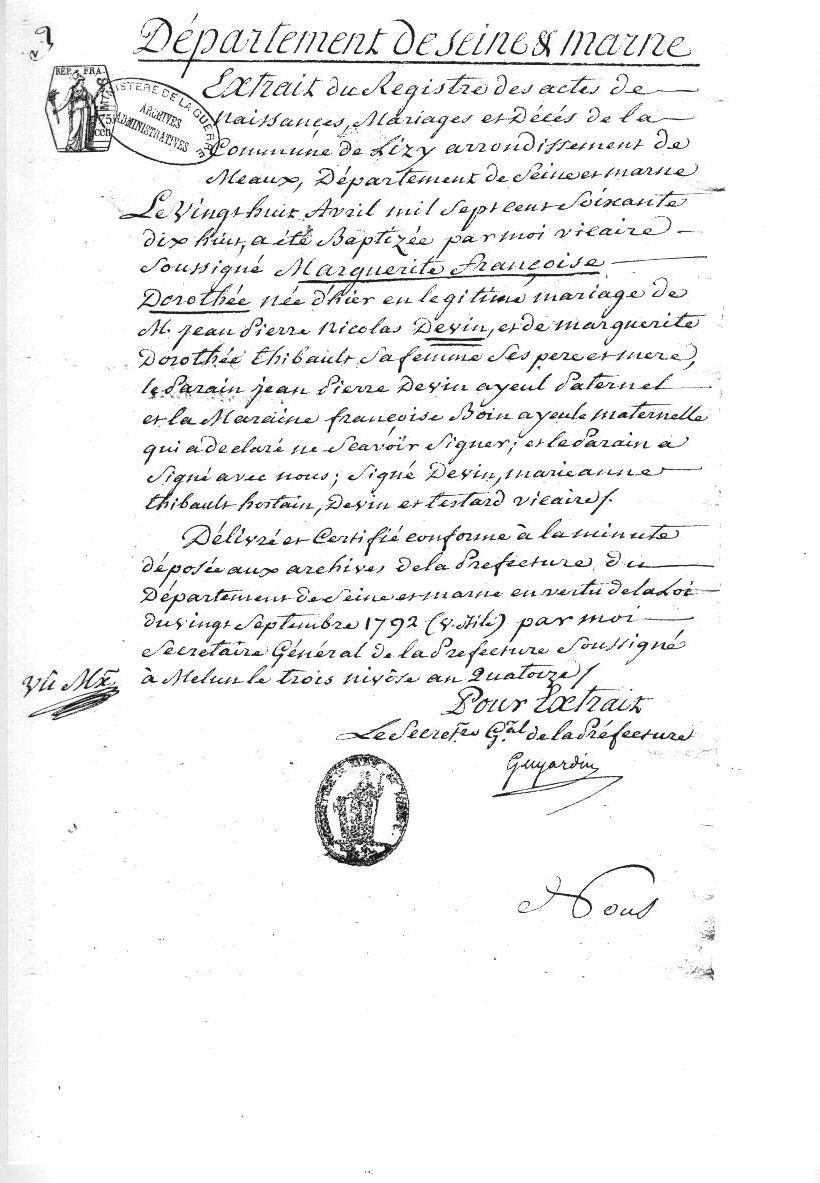 Département de seine & marne
REP. FRA.
75
cen
MINISTÈRE DE LA GUERRE
ARCHIVES
ADMINISTRATIVES
Extrait du Registre des actes de
naissances, Mariages et Décés de la
Commune de Lizy arrondissement de
Meaux, Département de Seine et marne
Le Vingt huit Avril mil Sept cent Soixante
dix huit, a été Baptizée par moi vicaire
Soussigné Marguerite françoise
Dorothée née d'hier en legitime mariage de
M. jean Pierre Nicolas Devin, et de marguerite
Dorothée thibault Sa femme Ses pere et mere,
le Parain jean Pierre Devin ayeul Paternel
et la Maraine françoise Boin ayeule maternelle
qui a declaré ne Scavöir Signer; et le Parain a
Signé avec nous; Signé Devin, marie anne
thibault hostain, Devin et testard vicaire /.
Délivré et Certifié conforme à la minute
déposée aux archives de la Prefecture du
Département de Seine et marne en vertu de la Loi
du vingt Septembre 1792 (v. stile) par moi
Secretaire Général de la Préfecture Soussigné
à Melun le trois nivôse an Quatorze /
Vû
Pour Extrait
Le Secret.re G.ral de la Préfecture
Guyardin
Nous